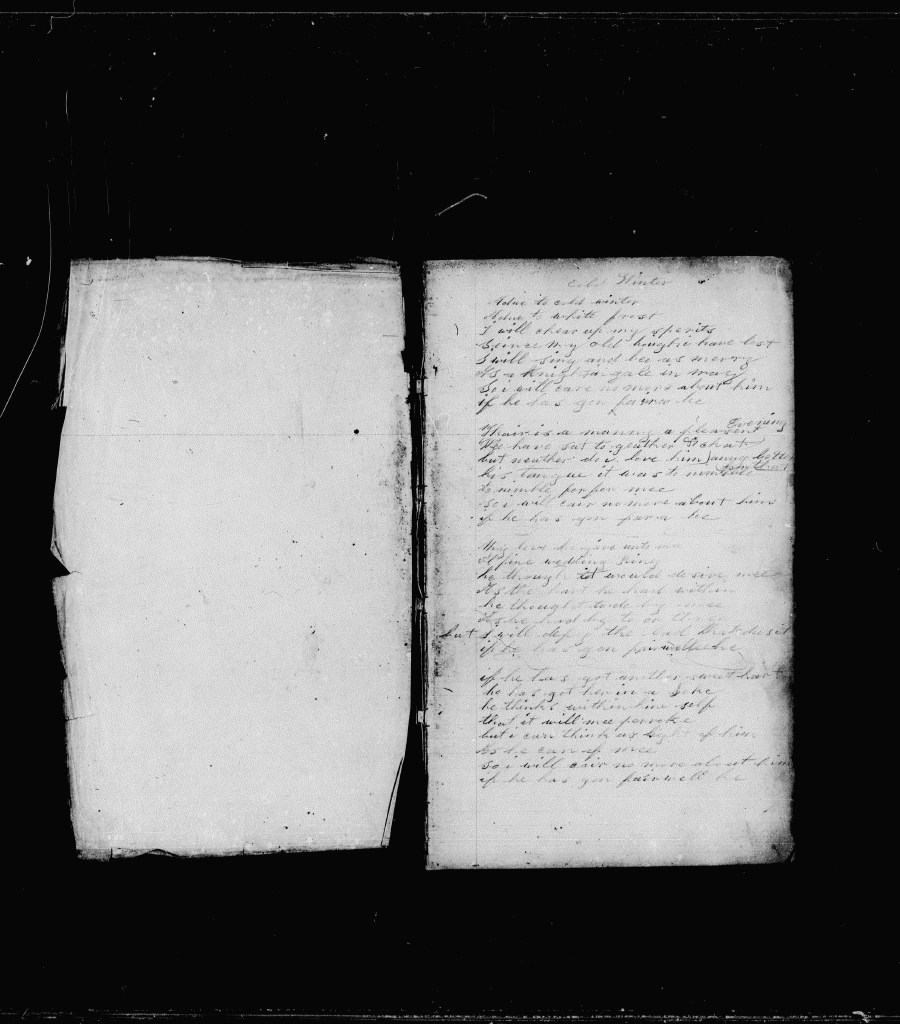 Cold Winter
Adue to cold winter
Adue to white frost
I will chear up my sperits
Seince my old
I will sing and bee as merry
As a knightn gale in may
So i will care no more about him
if he has gon fairwa he
Thair is a manny a pleasent Evening
Wee have sat to geather & chat
but neuther do i love him any better
his tangue it was to
to nimble for mee
So i will cair no more about him
if he has gon farwa he
love he gave unto me
A fine wedding Ring
he though it would desive mee
As the hart he had within
he thought to do by mee
As he had by to or three
but I will defy the lad that dus it
if he has gon fairwell he
if he has got another sweet hart
he has got her in a Joke
he thinks within him self
that it will mee pervoke
but i can think as light of him
As he can of mee
So i will cair no more about him
if he has gon fairwell he